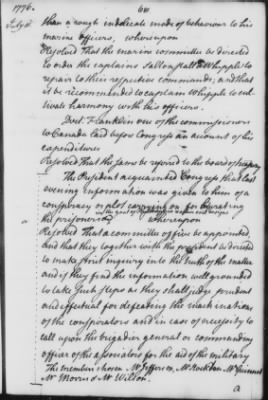 1776.
July 6
than a rough indelicate mode of behaviour to his
marine officers, whereupon
Resolved That the marine committee be directed
to order the captains Saltonstall & Whipple to
repair to their respective commands; and that
it be recommended to captain Whipple to cul-
tivate harmony with his officers.
Doct. Franklin one of the commissioners
to Canada laid before Congress an account of his
expenditures
Resolved That the same be referred to the board of treasury
The President acquainted Congress that last
evening information was given to them of a
conspiracy or plot carrying on for liberating
the prisoners
whereupon
Resolved That a committee of five be appointed,
and that they together with the president be directed
to make strict inquiry into the truth of the matter
and if they find the information well grounded
to take such steps as they shall judge prudent
and effectual for defeating the machinations
of the conspirators and in case of necessity to
call upon the brigadier general or commanding
officer of the associators for the aid of the military
The members chosen Mr Jefferson, Mr Stockton
Mr Morris & Mr Wilson.
a